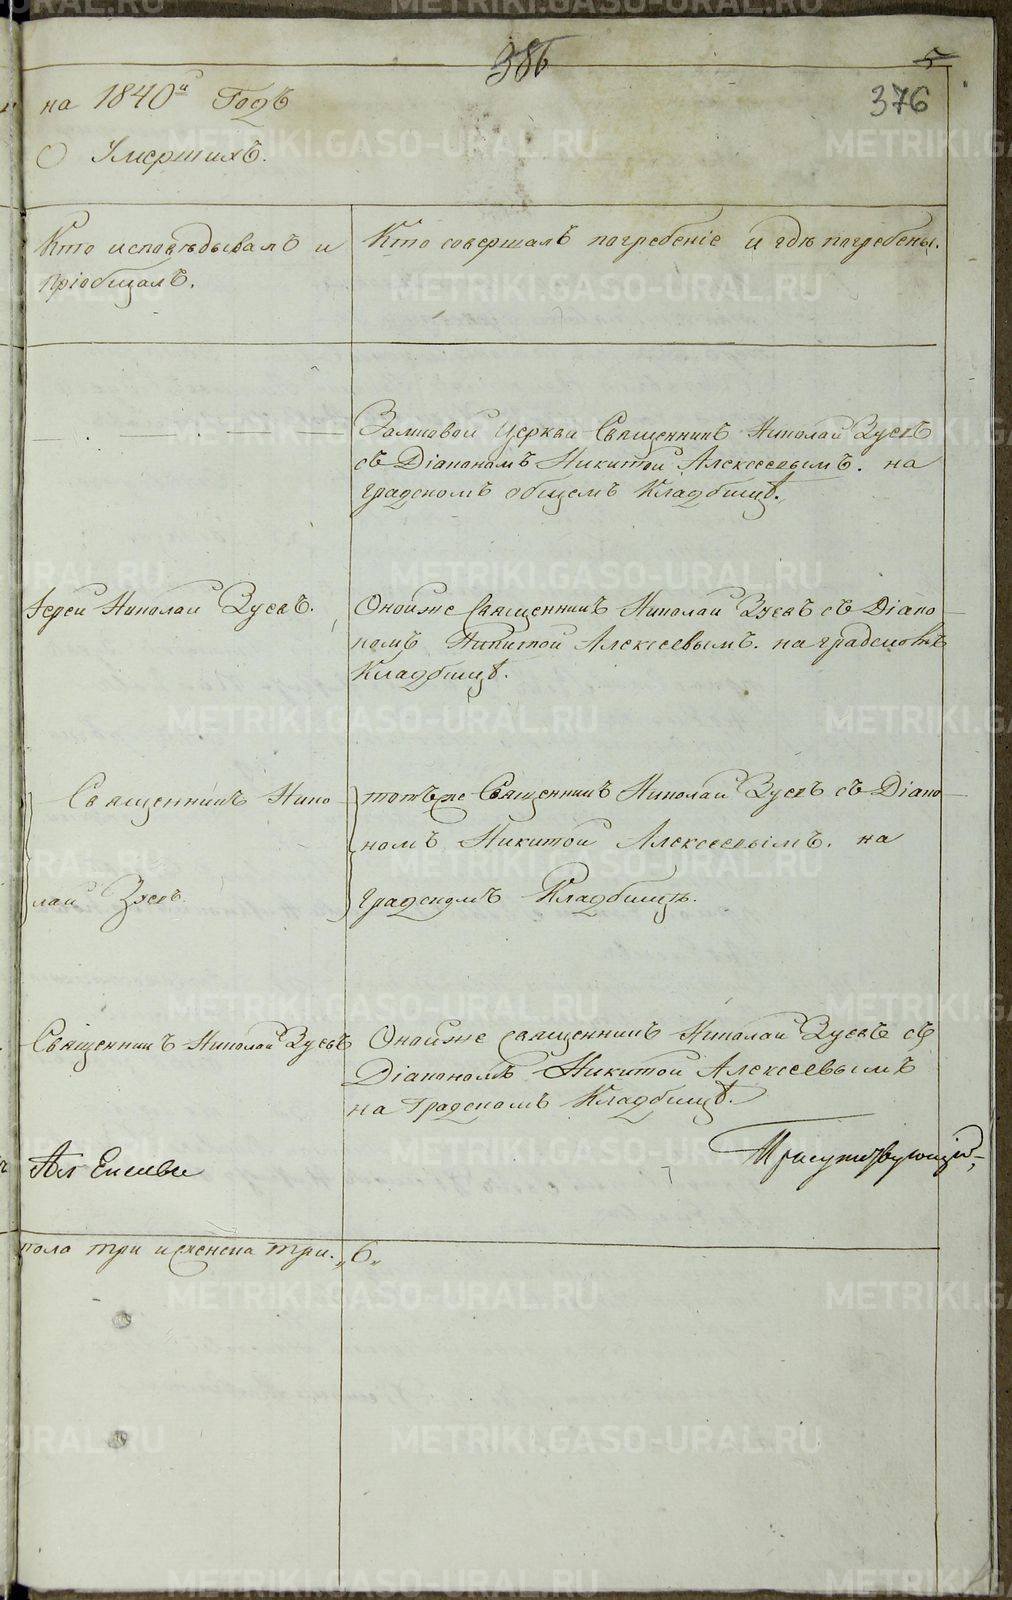 386
5
376
на 1840й Годъ
О Умершихъ.
Кто исповѣдывалъ и
пріобщалъ.
Кто совершалъ погребеніе и гдѣ погребены.
Замковой Церкви Священникъ Николай Зуевъ
съ Діакономъ Никитой Алексеевымъ. на
градскомъ общемъ Кладбищѣ.
Іерей Николай Зуевъ.
Онойже Священникъ Николай Зуевъ съ Діако
номъ Никитой Алексеевымъ. на градскомъ
Кладбищѣ.
Священникъ Нико
лай Зуевъ.
тотъже Священникъ Николай Зуевъ съ Діако
номъ Никитой Алексеевымъ. на
градскомъ Кладбищѣ.
Священникъ Николай Зуевъ
Онойже священникъ Николай Зуевъ съ
Діакономъ Никитой Алексеевымъ
на Градскомъ Кладбищѣ.
Присутствующій
пола три и женска три. „6„
METRIKI.GASO-URAL.RU